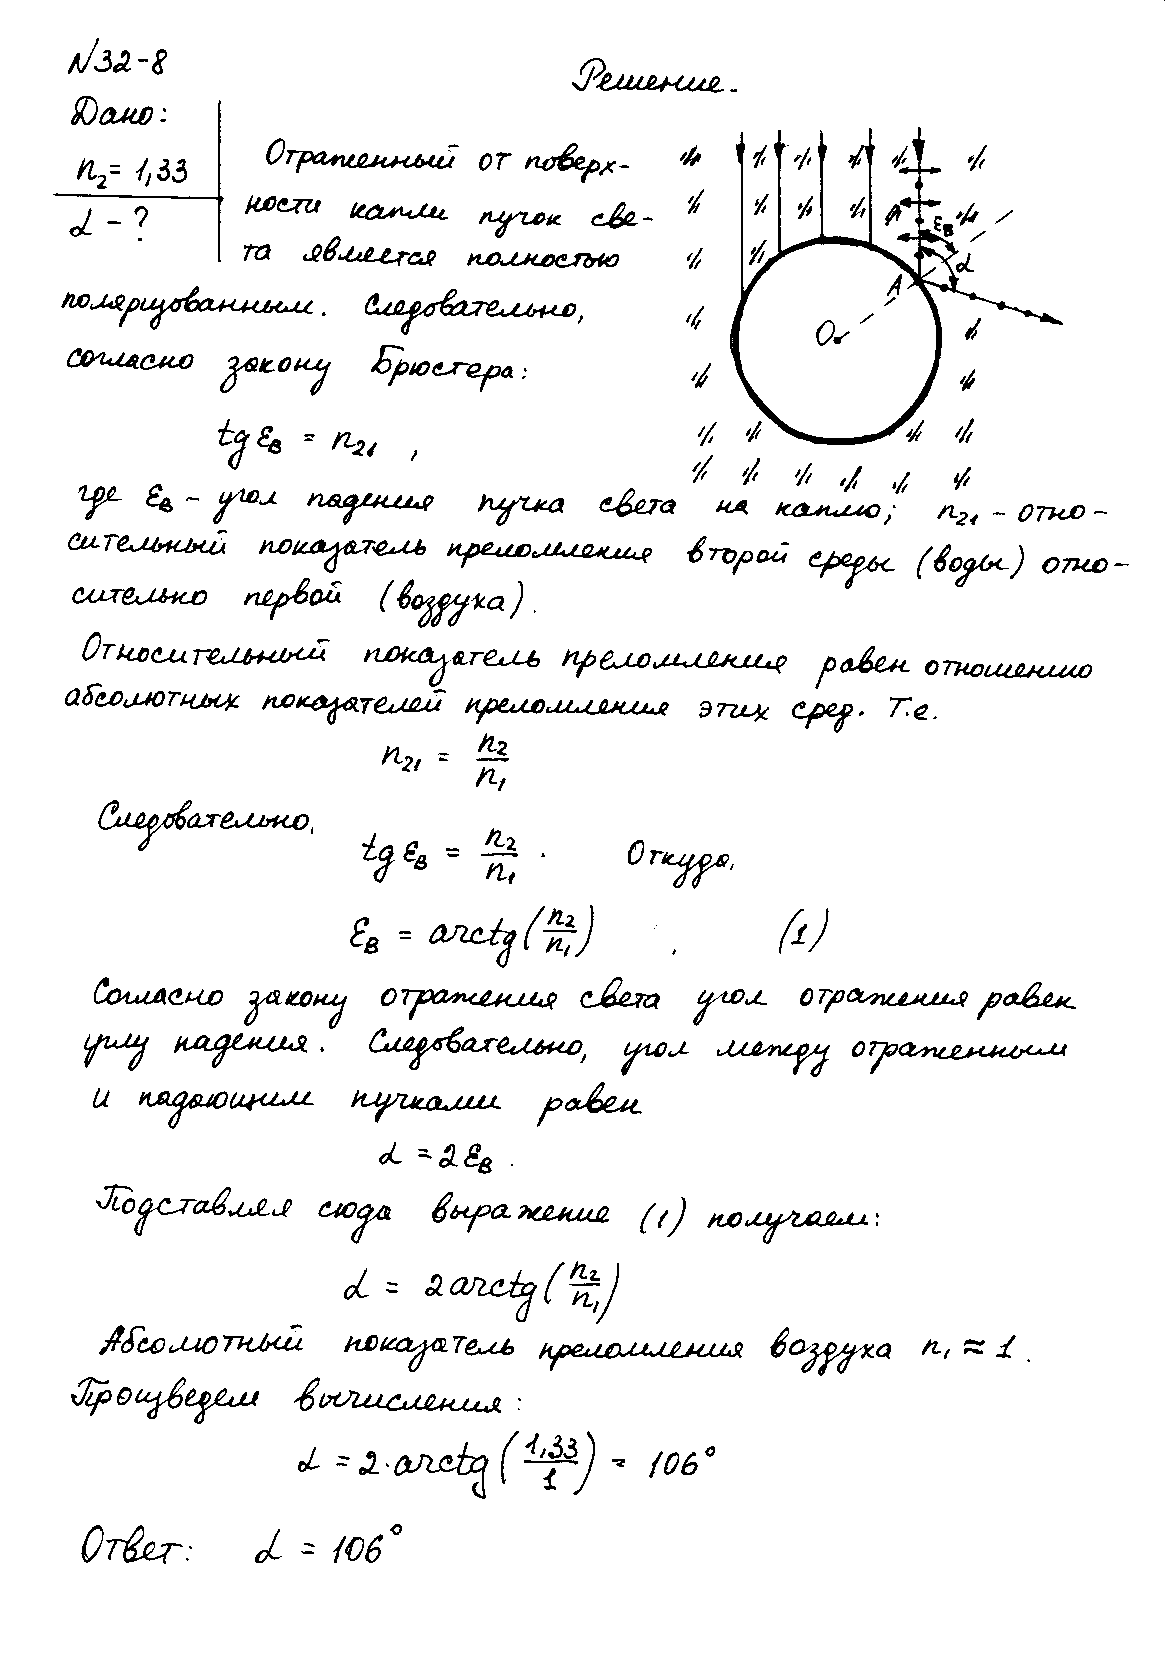 N32-8
Решение.
Дано:
n₂ = 1,33
α - ?
Отраженный от поверх-
ности капли пучок све-
та является полностью
поляризованным. Следовательно,
согласно закону Брюстера:
A
εв
α
O
tg εв = n₂₁ ,
где εв - угол падения пучка света на каплю; n₂₁ - отно-
сительный показатель преломления второй среды (воды) отно-
сительно первой (воздуха).
Относительный показатель преломления равен отношению
абсолютных показателей преломления этих сред. Т.е.
n₂₁ = n₂/n₁
Следовательно,
tg εв = n₂/n₁ . Откуда,
εв = arctg(n₂/n₁) , (1)
Согласно закону отражения света угол отражения равен
углу падения. Следовательно, угол между отраженным
и падающим пучками равен
α = 2εв .
Подставляя сюда выражение (1) получаем:
α = 2 arctg(n₂/n₁)
Абсолютный показатель преломления воздуха n₁ ≈ 1.
Произведем вычисления:
α = 2·arctg(1,33/1) = 106°
Ответ: α = 106°